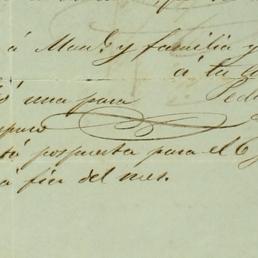 á Man.l y familia y
á la
una para Ped
está pospuesta para el 6
á fin del mes.